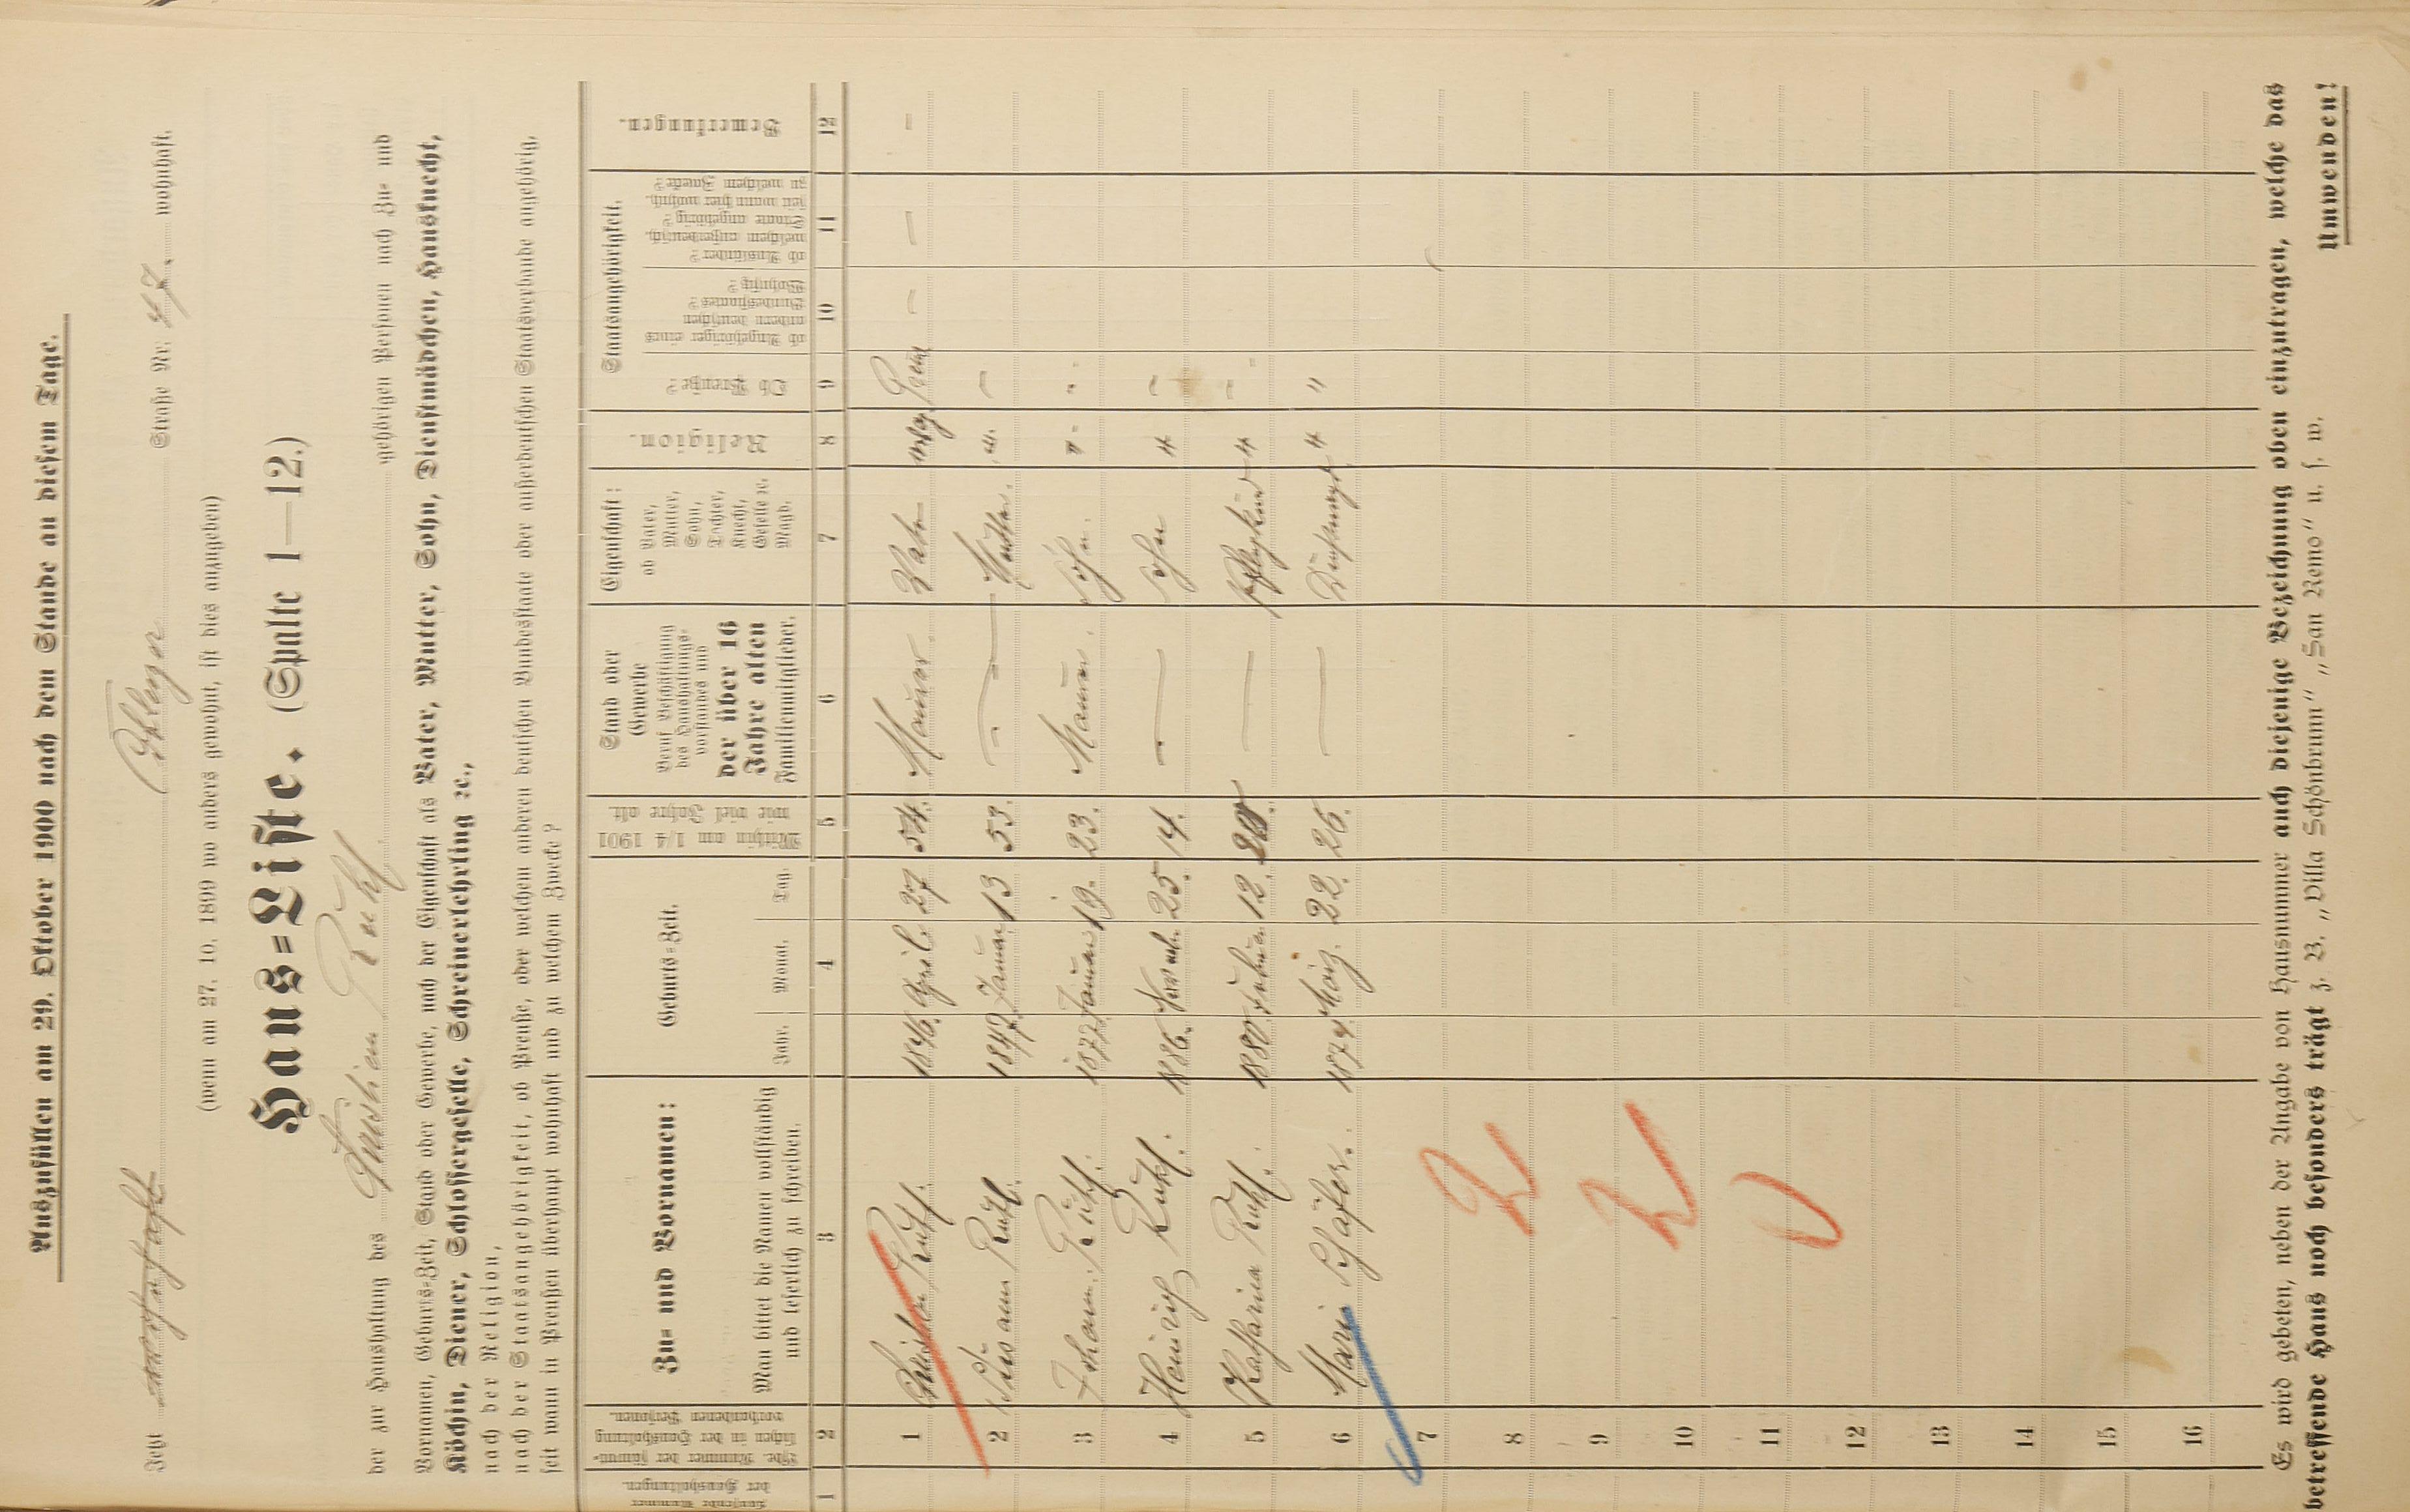 Auszufüllen am 29. Oktober 1900 nach dem Stande an diesem Tage.
Jetzt wohnhaft Straße Nr. 47. wohnhaft.
(wenn am 27. 10. 1899 wo anders gewohnt, ist dies anzugeben)
Haus=Liste. (Spalte 1—12.)
der zur Haushaltung des Christian Ruhl. gehörigen Personen nach Zu= und
Vornamen, Geburts=Zeit, Stand oder Gewerbe, nach der Eigenschaft als Vater, Mutter, Sohn, Dienstmädchen, Hausknecht,
Köchin, Diener, Schlossergeselle, Schreinerlehrling ꝛc.,
nach der Religion,
nach der Staatsangehörigkeit, ob Preuße, oder welchem anderen deutschen Bundesstaate oder außerdeutschen Staatsverbande angehörig,
seit wann in Preußen überhaupt wohnhaft und zu welchem Zwecke?
Laufende Nummer der Haushaltungen.
Lfde. Nummer der sämmtlichen in der Haushaltung vorhandenen Personen.
Zu= und Vornamen:
Man bittet die Namen vollständig
und leserlich zu schreiben.
Geburts=Zeit.
Jahr. Monat. Tag.
Mithin am 1/4 1901
wie viel Jahre alt.
Stand oder
Gewerbe
Beruf Beschäftigung
des Haushaltungs=
vorstandes und
der über 16
Jahre alten
Familienmitglieder.
Eigenschaft:
ob Vater,
Mutter,
Sohn,
Tochter,
Knecht,
Geselle ꝛc.
Magd.
Religion.
Staatsangehörigkeit.
Ob Preuße?
ob Angehöriger eines
andern deutschen
Bundesstaates?
Wohnsitz?
ob Ausländer?
welchem außerdeutsch.
Staate angehörig?
seit wann hier wohnh.
zu welchem Zwecke?
Bemerkungen.
1 2 3 4 5 6 7 8 9 10 11 12
1 Christian Ruhl. 1846. April 27 54. Maurer. Vater evg. Preuß — — —
2 Susann Ruhl. 1847. Januar 13 53. — Mutter. " "
3 Johann. Ruhl. 1877. Januar 19. 23. Maurer. Sohn. " "
4 Heinrich Ruhl. 1886. Novemb. 25. 14. — Sohn " "
5 Katharina Ruhl. 1880. Februar 12. 20. — Pflegkind " "
6 Marie Schäfer. 1874. März. 22. 26. — Dienstmagd " "
7
8
9
10
11
12
13
14
15
16
2
2
0
Es wird gebeten, neben der Angabe von Hausnummer auch diejenige Bezeichnung oben einzutragen, welche das
betreffende Haus noch besonders trägt z. B. „Villa Schönbrunn" „San Remo" u. s. w.
Umwenden!